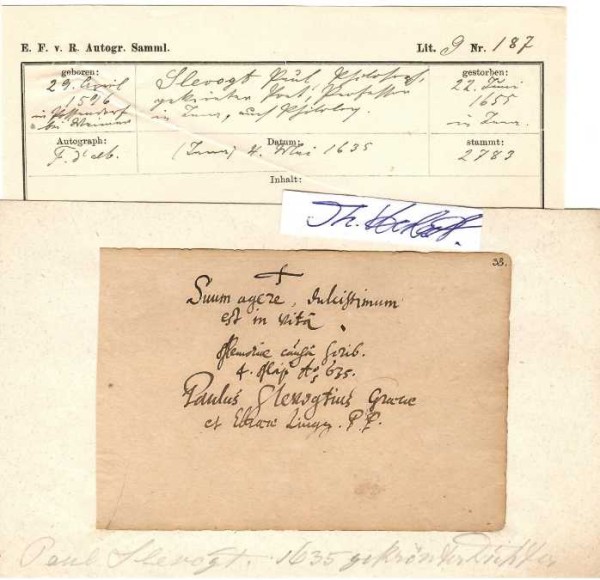 E. F. v. R. Autogr. Samml. Lit. 9 Nr. 187
geboren:
29. April
1596
in Possendorf
bei Weimar
Slevogt Paul, Philosoph,
gekrönter Poet, Professor
in Jena, auch Philolog.
gestorben:
22. Juni
1655
in Jena.
Autograph:
Datum:
(Jena) 4. Mai 1635
stammt:
2783
Inhalt:
Th.
33.
Suum agere, dulcissimum
est in vitâ.
Memoriae causâ scrib.
4. Maji Ao 635.
Paulus Slevogtius Graecae
et Ebraeae Linguae P. P.
Paul Slevogt. 1635 gekrönter Dichter